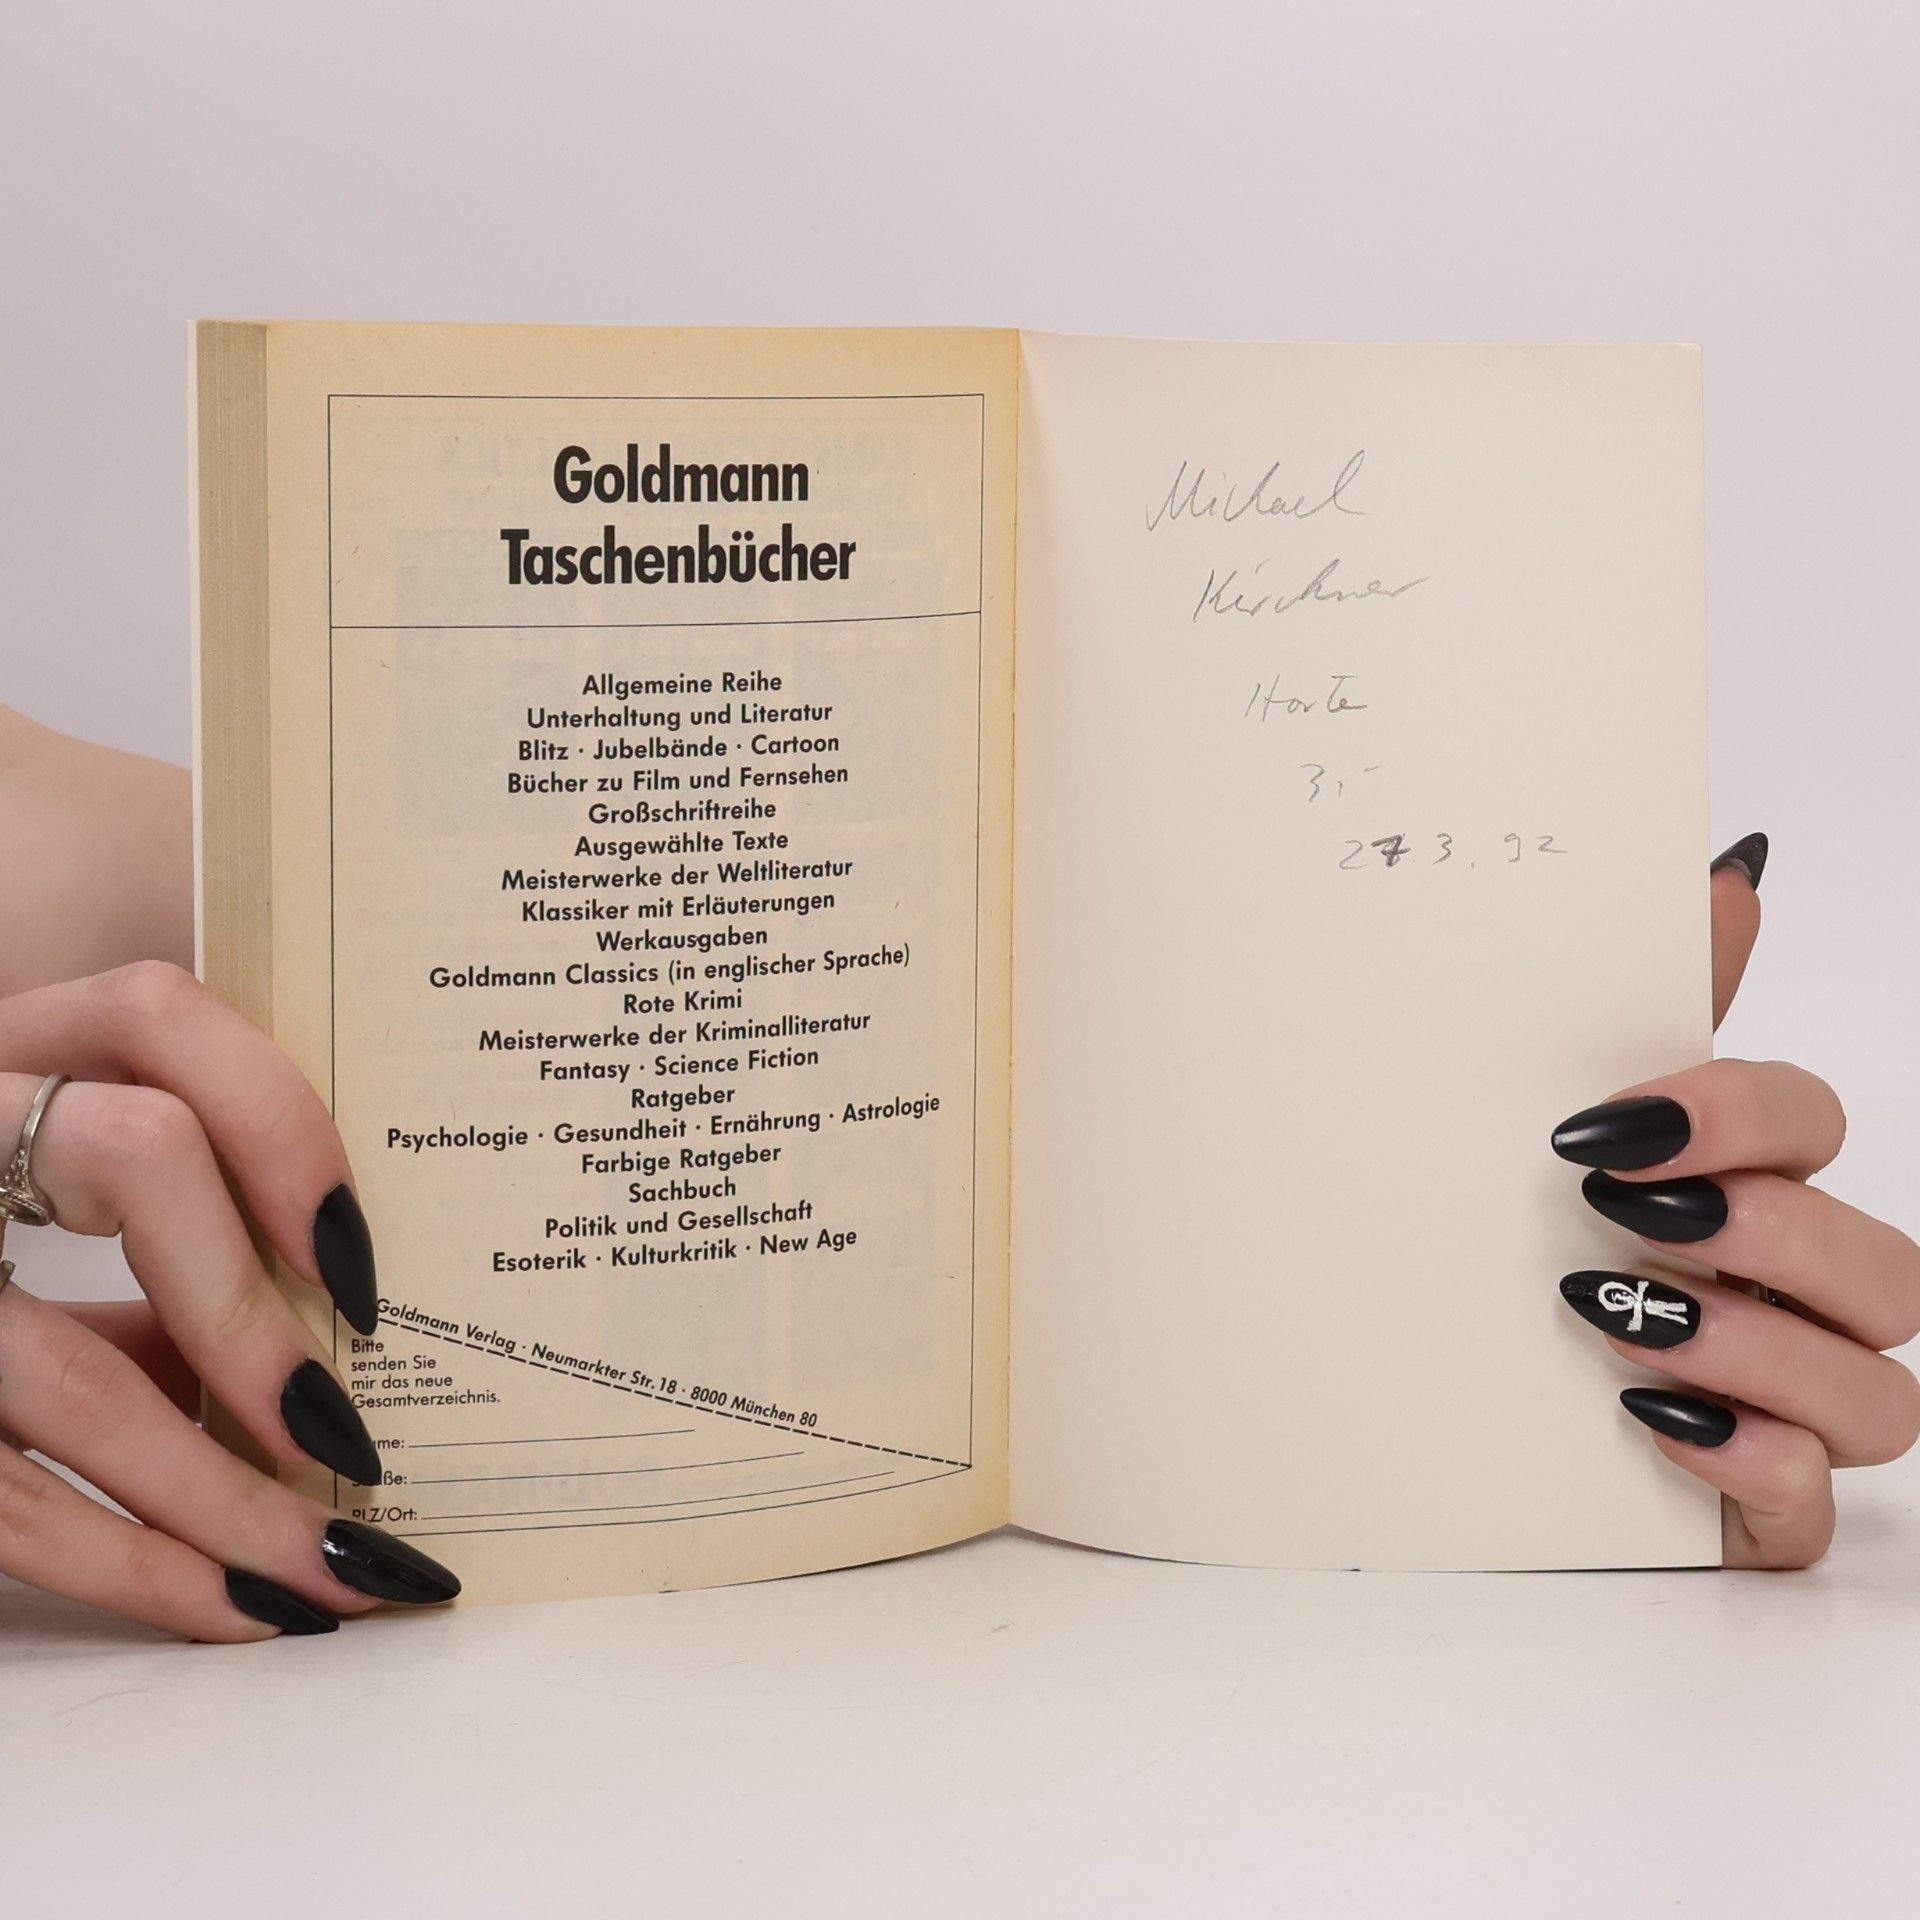 Goldmann
Taschenbücher
Allgemeine Reihe
Unterhaltung und Literatur
Blitz · Jubelbände · Cartoon
Bücher zu Film und Fernsehen
Großschriftreihe
Ausgewählte Texte
Meisterwerke der Weltliteratur
Klassiker mit Erläuterungen
Werkausgaben
Goldmann Classics (in englischer Sprache)
Rote Krimi
Meisterwerke der Kriminalliteratur
Fantasy · Science Fiction
Ratgeber
Psychologie · Gesundheit · Ernährung · Astrologie
Farbige Ratgeber
Sachbuch
Politik und Gesellschaft
Esoterik · Kulturkritik · New Age
Goldmann Verlag · Neumarkter Str. 18 · 8000 München 80
Bitte
senden Sie
mir das neue
Gesamtverzeichnis.
me:
ße:
PLZ/Ort:
Michael
Kirchner
3,-
27.3.92